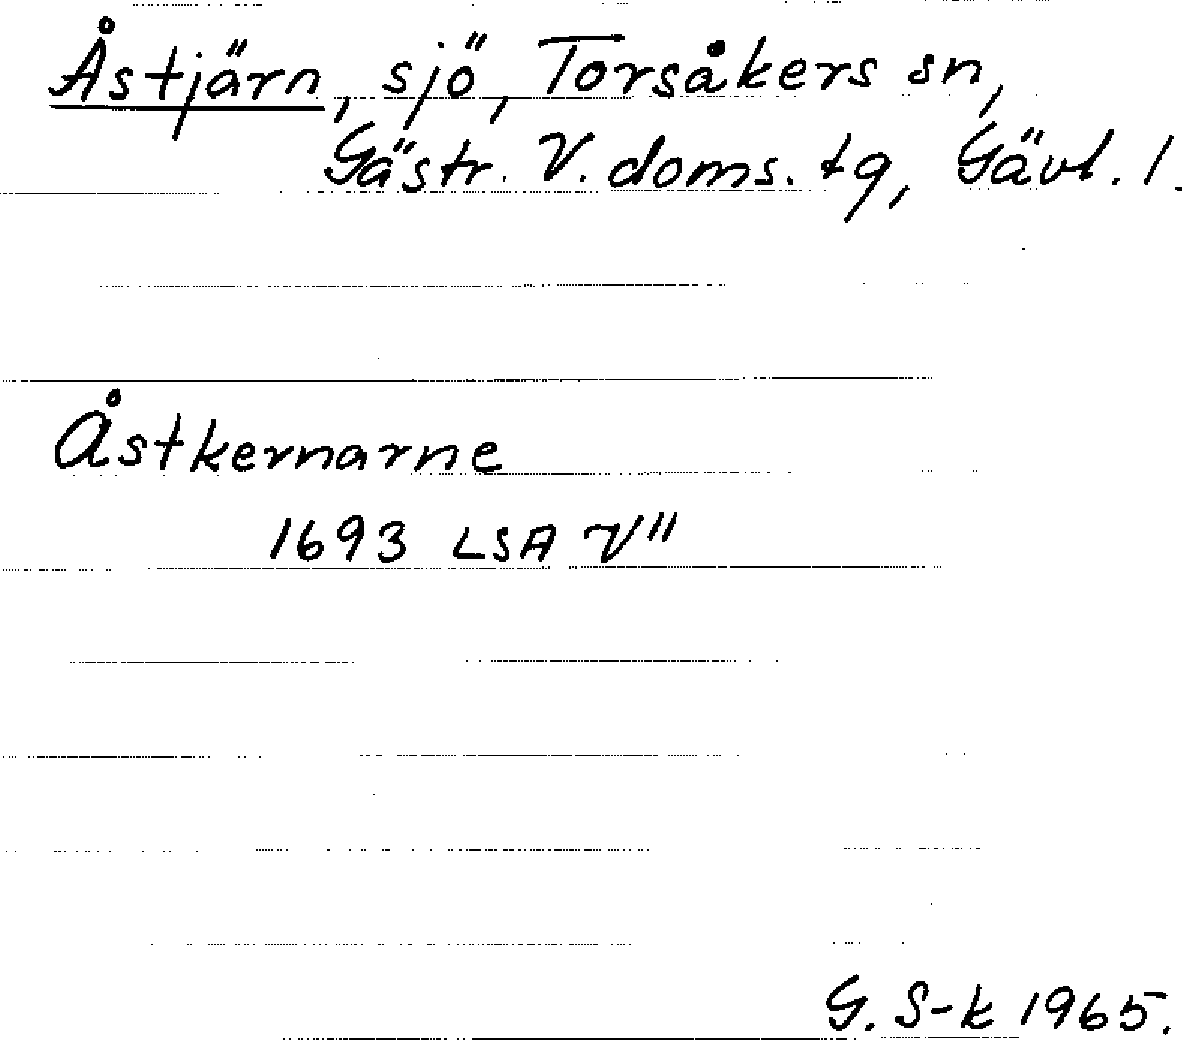 Åstjärn, sjö, Torsåkers sn,
Gästr. V. doms. tg, Gävl. l.
Åstkernarne
1693 LSA V"
G. S-k 1965.